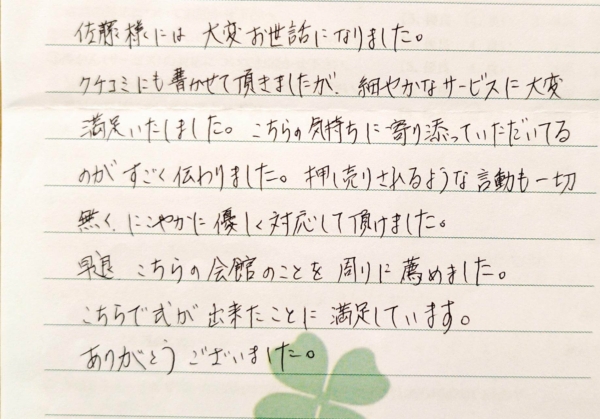 佐藤様には 大変お世話になりました。
クチコミにも書かせて頂きましたが、細やかなサービスに大変
満足いたしました。こちらの気持ちに寄り添っていただいてる
のがすごく伝わりました。押し売りされるような言動も一切
無く、にこやかに優しく対応して頂けました。
早退、こちらの会館のことを周りに薦めました。
こちらで式が出来たことに満足しています。
ありがとうございました。